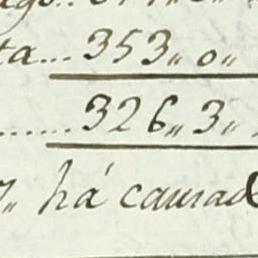 ta... 353,, 0,,
...... 326,, 3,,
,, há causad